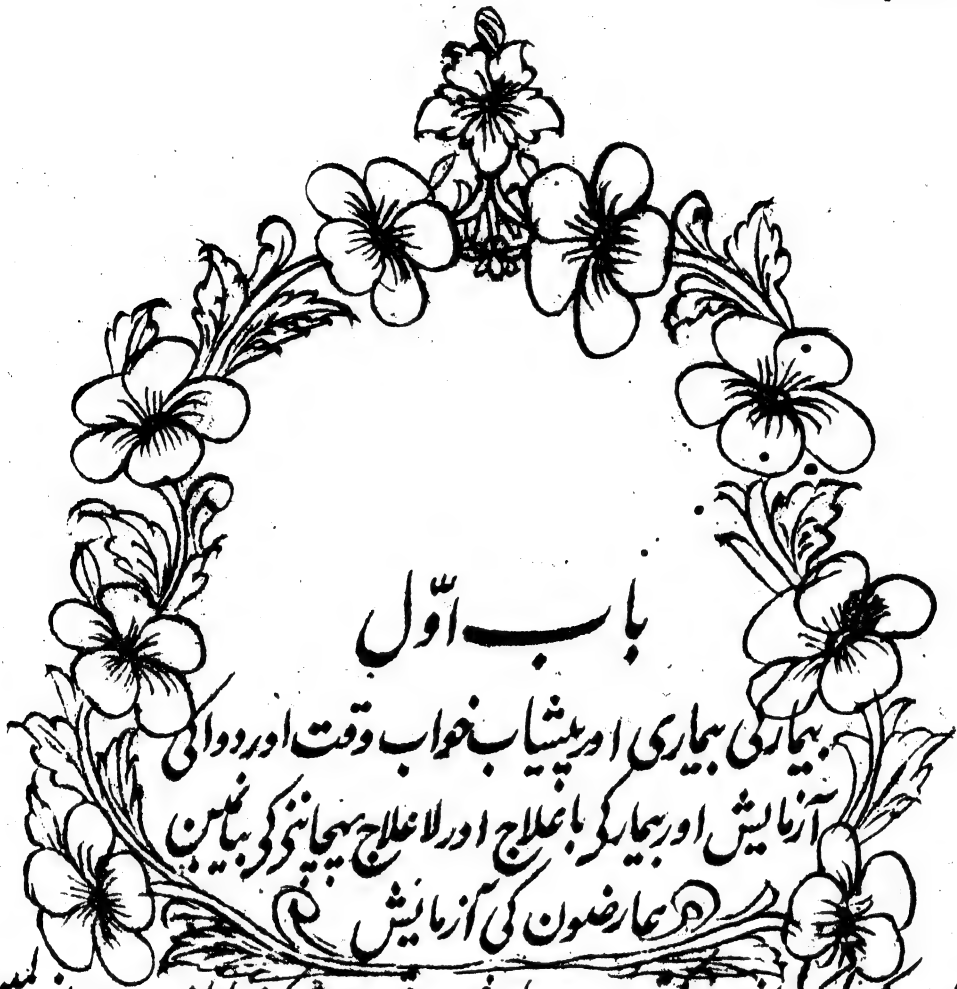 باب اوّل
بیمار کی بیماری اور پیشاب خواب وقت اور دوا کی
آزمایش اور بیمار کی باعلاج اور لاعلاج پہچاننی کی بیانمین
بیمارضون کی آزمایش